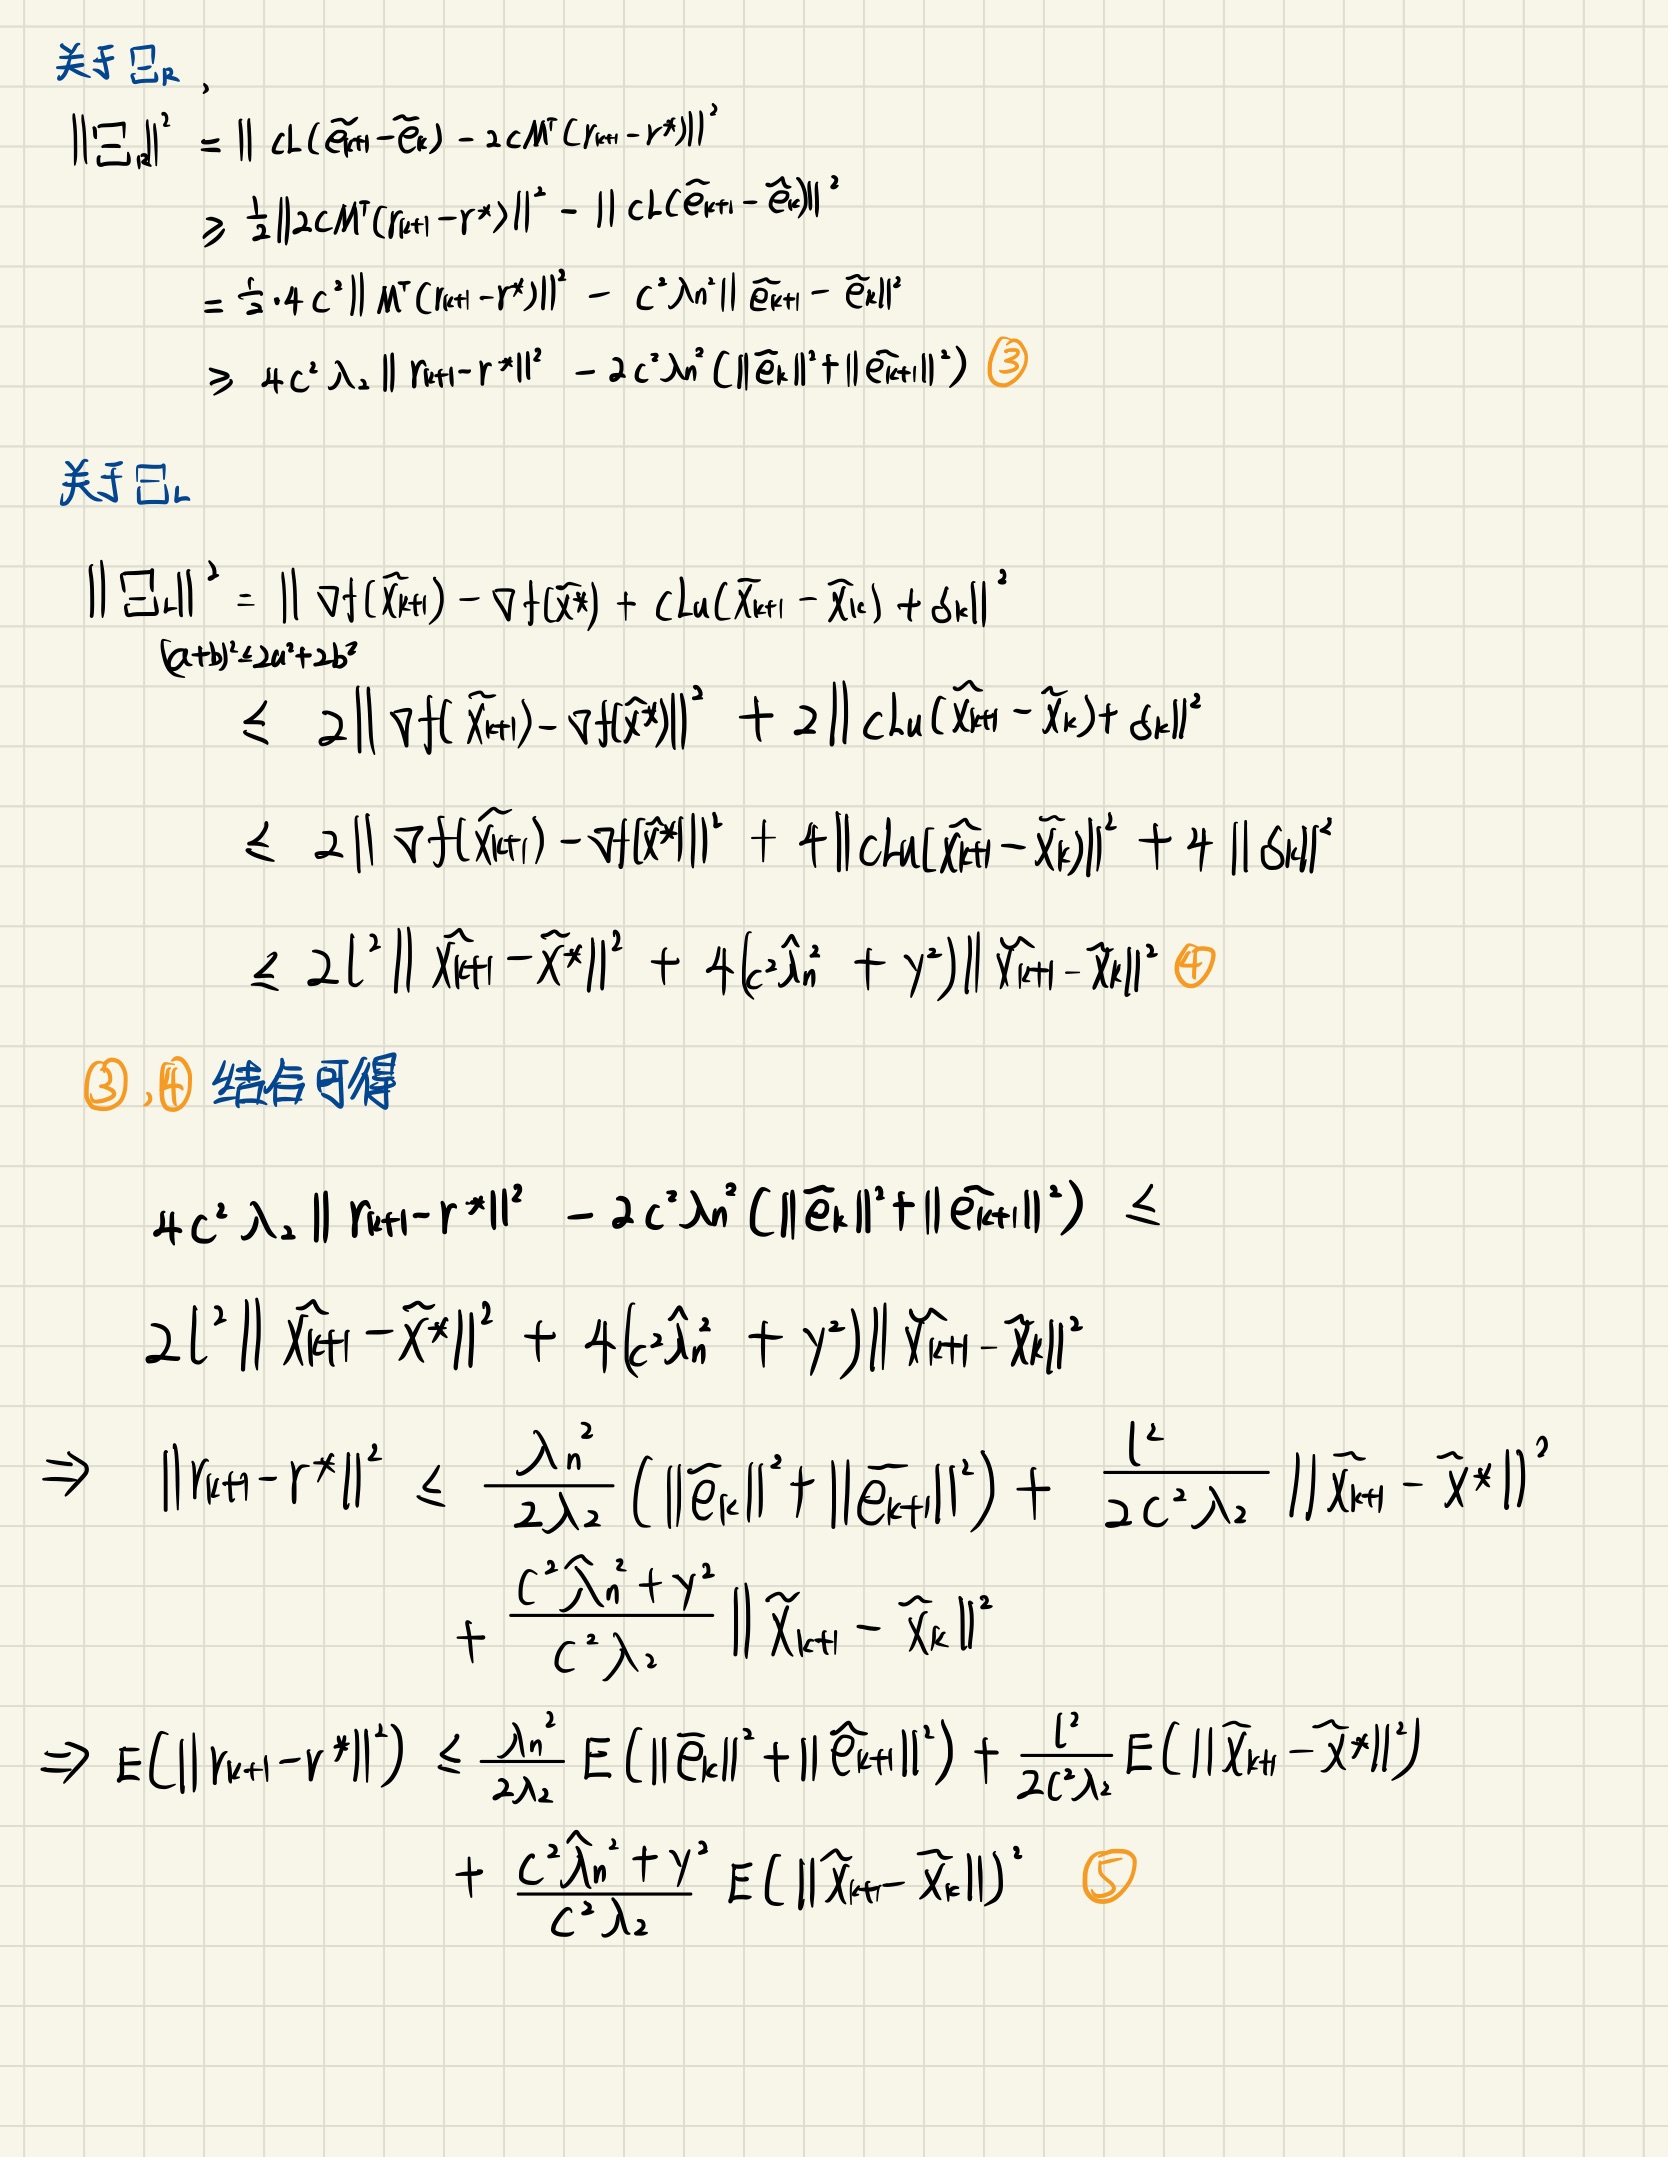 关于 Ξ_R ,
‖Ξ_R‖² = ‖ cL(ẽ_{k+1} − ẽ_k) − 2cMᵀ(r_{k+1} − r*)‖²
≥ ½‖2cMᵀ(r_{k+1} − r*)‖² − ‖cL(ẽ_{k+1} − ẽ_k)‖²
= ½·4c²‖Mᵀ(r_{k+1} − r*)‖² − c²λn²‖ẽ_{k+1} − ẽ_k‖²
≥ 4c²λ₂‖r_{k+1} − r*‖² − 2c²λn²(‖ẽ_k‖² + ‖ẽ_{k+1}‖²) ③
关于 Ξ_L
‖Ξ_L‖² = ‖∇f(x̃_{k+1}) − ∇f(x̃*) + cLu(x̃_{k+1} − x̃_k) + δk‖²
(a+b)² ≤ 2a²+2b²
≤ 2‖∇f(x̃_{k+1}) − ∇f(x̃*)‖² + 2‖cLu(x̃_{k+1} − x̃_k) + δk‖²
≤ 2‖∇f(x̃_{k+1}) − ∇f(x̃*)‖² + 4‖cLu(x̃_{k+1} − x̃_k)‖² + 4‖δk‖²
≤ 2l²‖x̃_{k+1} − x̃*‖² + 4(c²λ̂n² + γ²)‖x̃_{k+1} − x̃_k‖² ④
③,④ 结合可得
4c²λ₂‖r_{k+1} − r*‖² − 2c²λn²(‖ẽ_k‖² + ‖ẽ_{k+1}‖²) ≤
2l²‖x̃_{k+1} − x̃*‖² + 4(c²λ̂n² + γ²)‖x̃_{k+1} − x̃_k‖²
⇒ ‖r_{k+1} − r*‖² ≤ λn²/2λ₂ (‖ẽ_k‖² + ‖ẽ_{k+1}‖²) + l²/2c²λ₂ ‖x̃_{k+1} − x̃*‖²
+ c²λ̂n² + γ²/c²λ₂ ‖x̃_{k+1} − x̃_k‖²
⇒ E(‖r_{k+1} − r*‖²) ≤ λn²/2λ₂ E(‖ẽ_k‖² + ‖ẽ_{k+1}‖²) + l²/2c²λ₂ E(‖x̃_{k+1} − x̃*‖²)
+ c²λ̂n² + γ²/c²λ₂ E(‖x̃_{k+1} − x̃_k‖)² ⑤